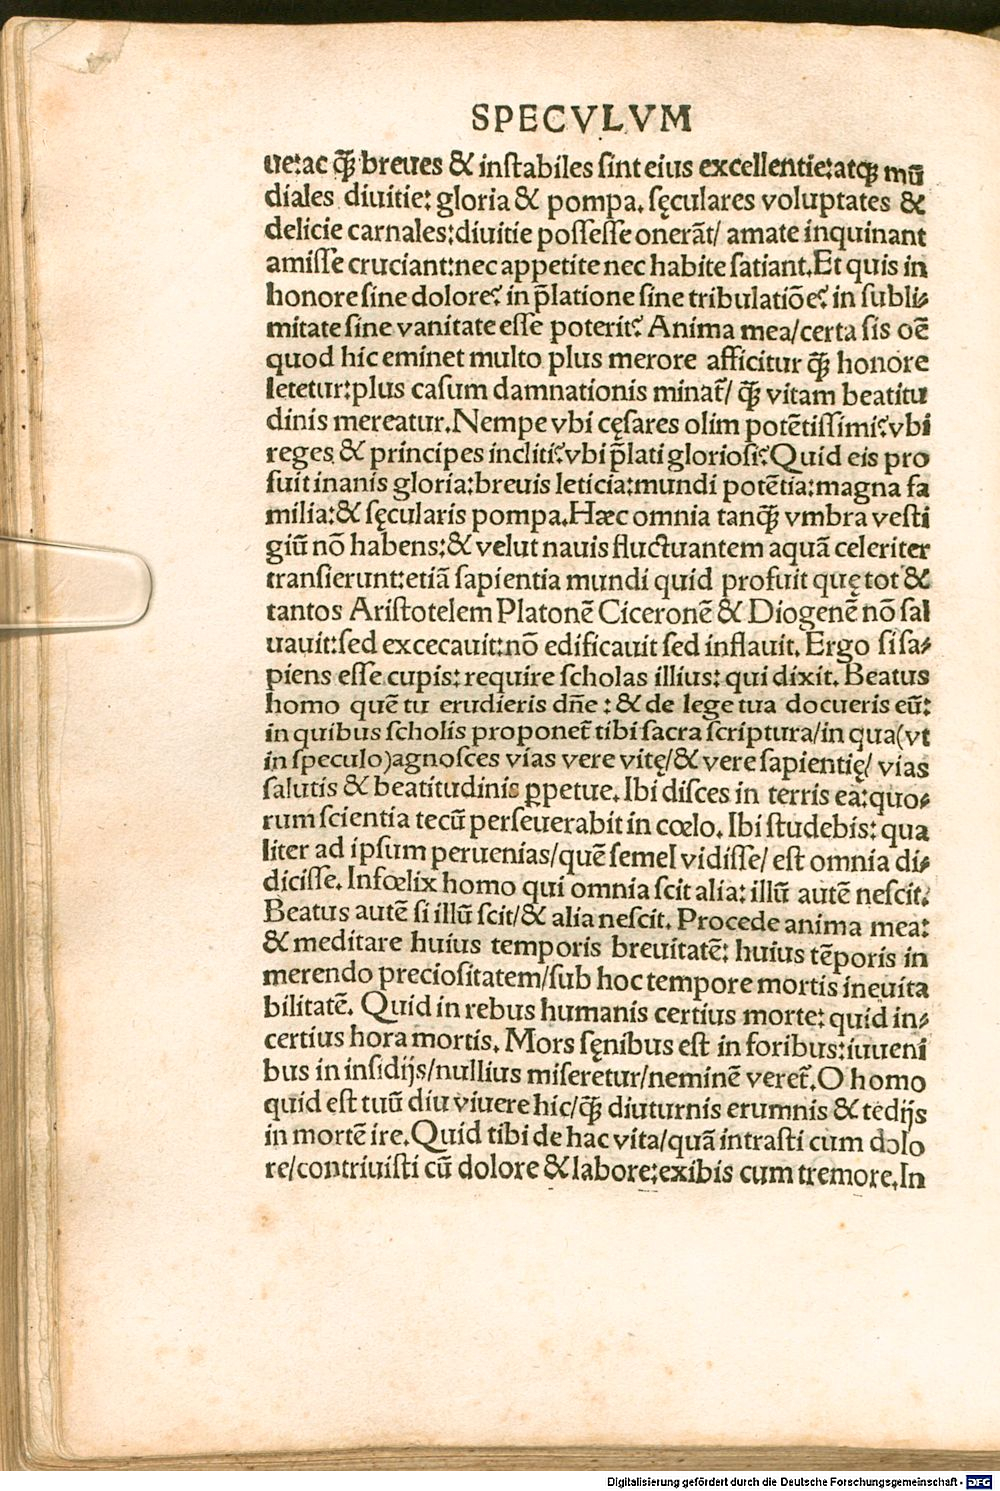 SPECVLVM
ue:ac q̃ꝫ breues & instabiles sint eius excellentie:atqꝫ mũ
diales diuitie: gloria & pompa. sęculares voluptates &
delicie carnales:diuitie possesse onerãt/ amate inquinant
amisse cruciant:nec appetite nec habite satiant.Et quis in
honore sine dolore? in p̃latione sine tribulatiõe? in subli⸗
mitate sine vanitate esse poterit? Anima mea/certa sis oẽ
quod hic eminet multo plus merore afficitur q̃ꝫ honore
letetur:plus casum damnationis minat̃/ q̃ꝫ vitam beatitu
dinis mereatur.Nempe vbi cęsares olim potẽtissimi?vbi
reges & principes incliti?vbi p̃lati gloriosi?Quid eis pro
fuit inanis gloria:breuis leticia:mundi potẽtia:magna fa
milia:& sęcularis pompa.Hæc omnia tanq̃ꝫ vmbra vesti
giũ nõ habens:& velut nauis fluctuantem aquã celeriter
transierunt:etiã sapientia mundi quid profuit quę tot &
tantos Aristotelem Platonẽ Ciceronẽ & Diogenẽ nõ sal
uauit:sed excecauit:nõ edificauit sed inflauit. Ergo si sa⸗
piens esse cupis: require scholas illius: qui dixit. Beatus
homo quẽ tu erudieris dñe : & de lege tua docueris eũ:
in quibus scholis proponet̃ tibi sacra scriptura/in qua(vt
in speculo)agnosces vias vere vitę/& vere sapientię/ vias
salutis & beatitudinis ꝑpetue. Ibi disces in terris ea:quo⸗
rum scientia tecũ perseuerabit in cœlo. Ibi studebis: qua
liter ad ipsum peruenias/quẽ semel vidisse/ est omnia di⸗
dicisse. Infœlix homo qui omnia scit alia: illũ autẽ nescit.
Beatus autẽ si illũ scit/& alia nescit. Procede anima mea:
& meditare huius temporis breuitatẽ: huius tẽporis in
merendo preciositatem/sub hoc tempore mortis ineuita
bilitatẽ. Quid in rebus humanis certius morte: quid in⸗
certius hora mortis. Mors sęnibus est in foribus:iuueni
bus in insidijs/nullius miseretur/neminẽ veret̃.O homo
quid est tuũ diu viuere hic/q̃ꝫ diuturnis erumnis & tedijs
in mortẽ ire.Quid tibi de hac vita/quã intrasti cum dolo
re/contriuisti cũ dolore & labore:exibis cum tremore.In
Digitalisierung gefördert durch die Deutsche Forschungsgemeinschaft - DFG